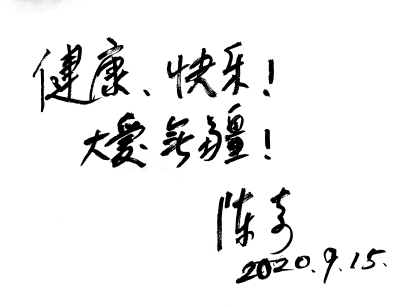 健康、快乐!
大爱无疆!
陈奇
2020.9.15.